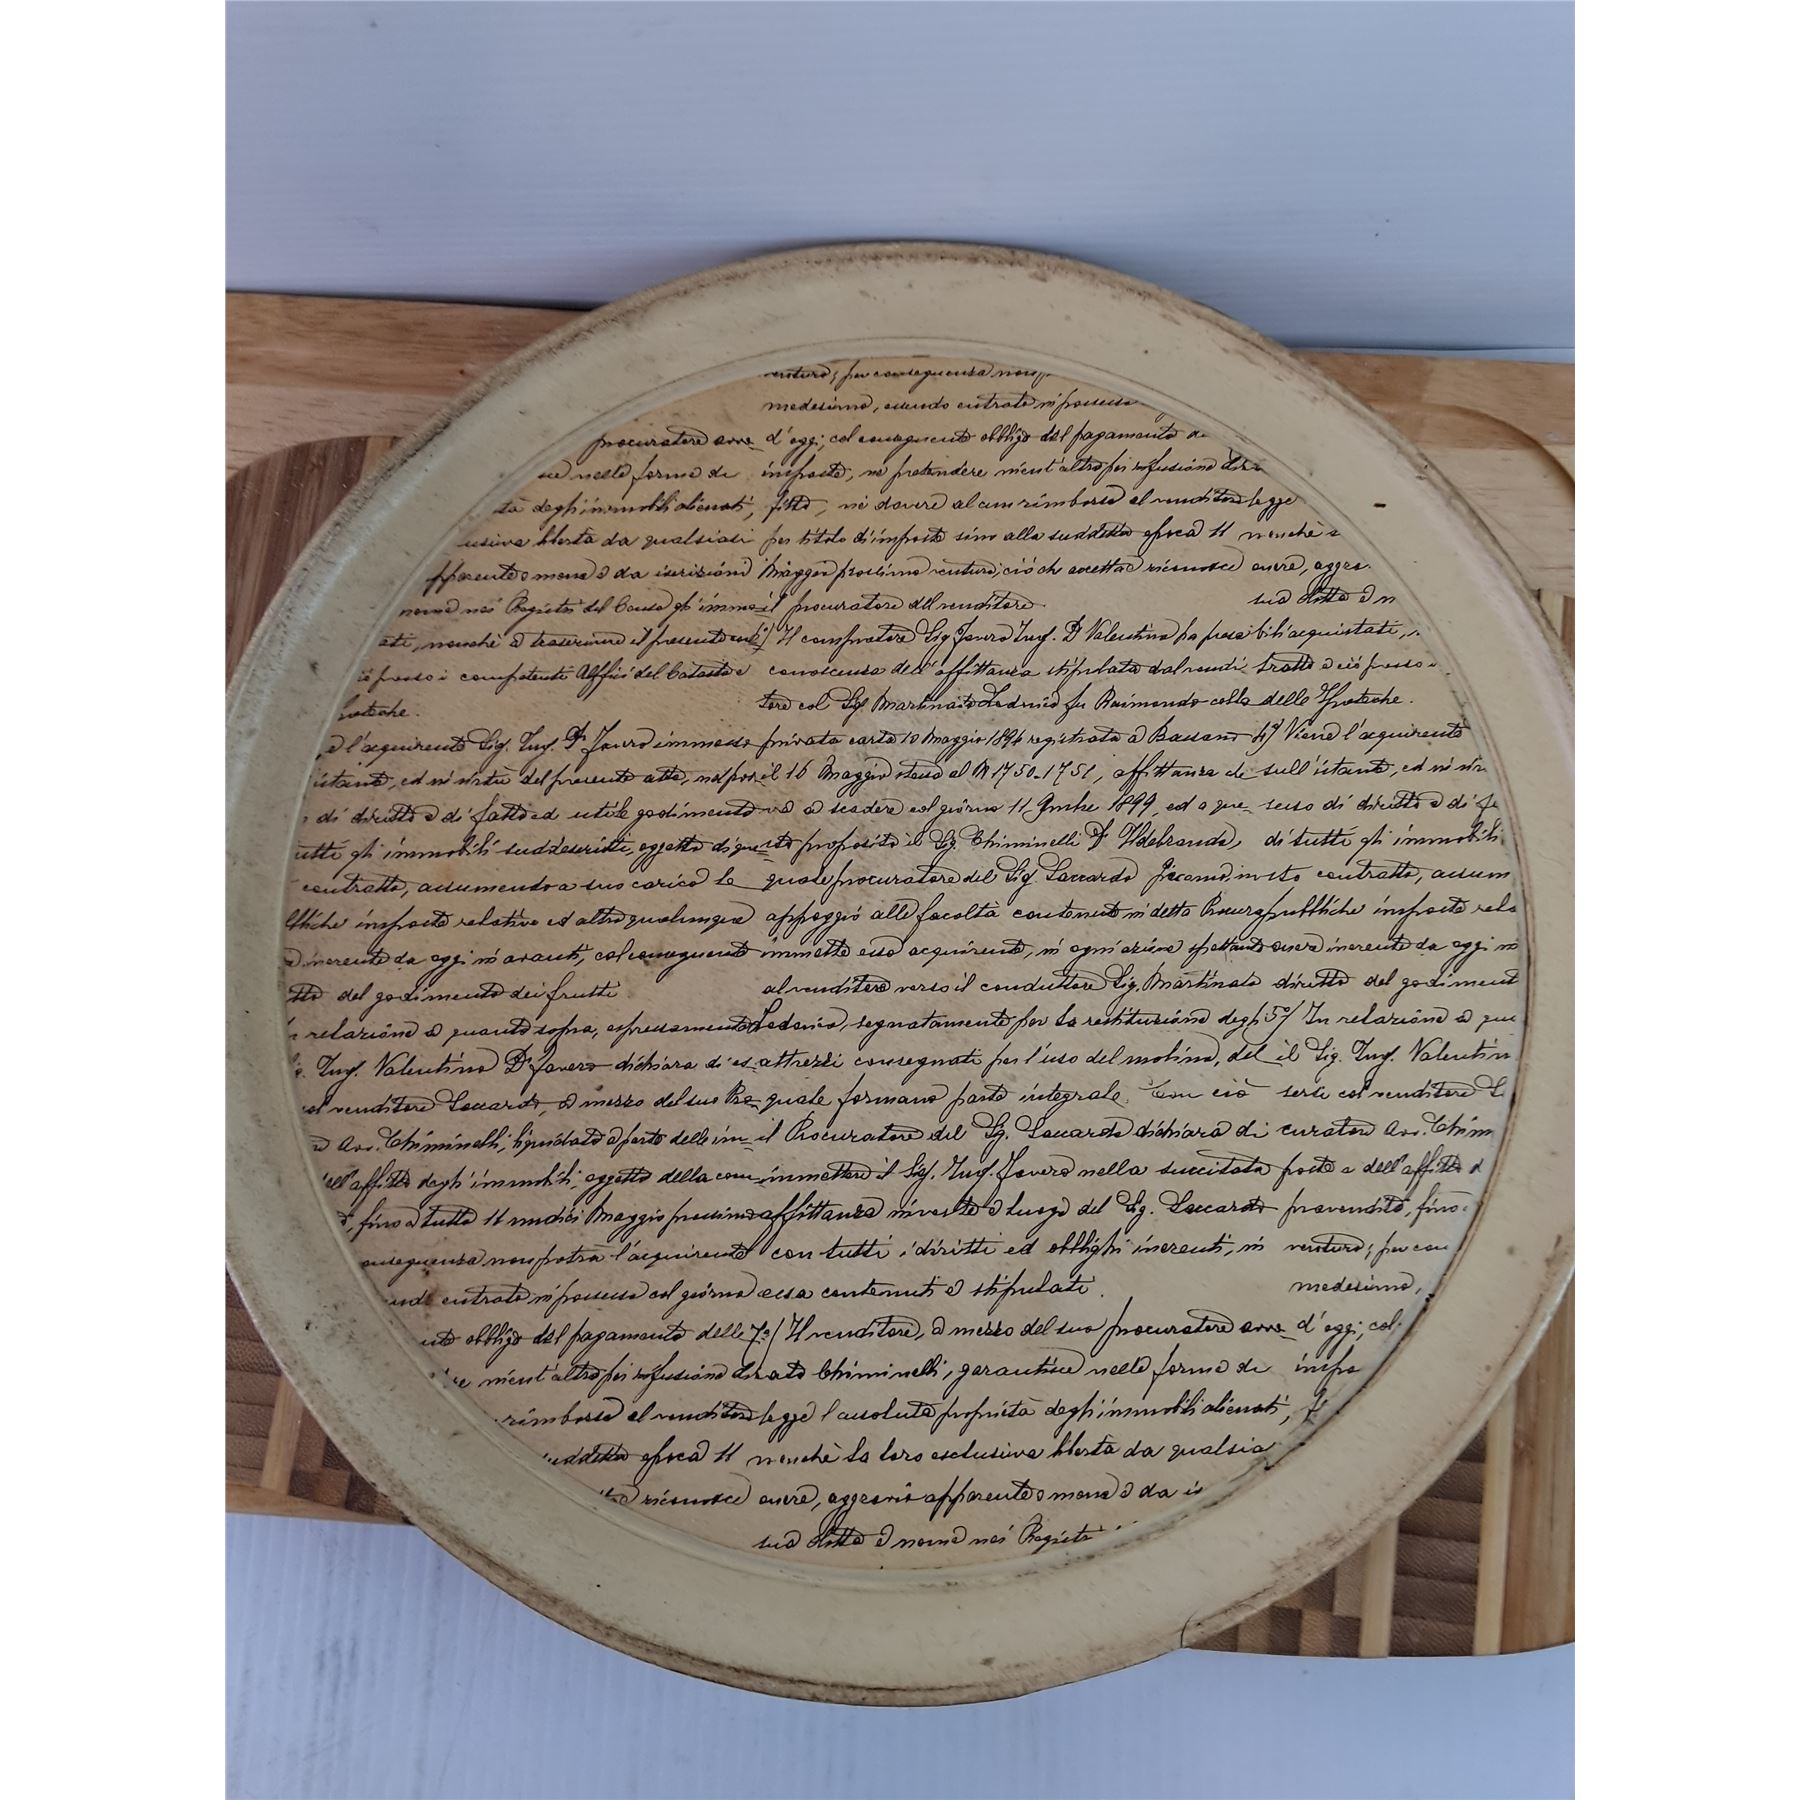 venturo; per conseguenza non p
medesimo, essendo entrato in possesso
procuratore avv. d'oggi; col conseguente obbligo del pagamento de
nelle forme di imposte, nè pretendere nient'altro per rifusione di
tà degli immobili alienati, fitto, nè dovere alcun rimborso al venditore legge
usiva libertà da qualsiasi per titolo di imposte sino alla suddetta epoca 11 nonchè
apparente o meno e da iscrizioni Maggio prossimo venturo; ciò ch'accetta e riconosce onere, aggra
nome nei Registri del Censo gli immo= il procuratore del venditore. sua ditta e n
ati, nonchè a trascrivere il presente 6°/ Il compratore Sig. Favero Ing. Dr Valentino ha presa bili acquistati,
iò presso i competenti Uffici del Catasto e conoscenza dell'affittanza stipulata dal vendi= tratto e ciò presso i
poteche. tore col Sig. Martinato Lodovico fu Raimondo colla delle Ipoteche.
l'acquirente Sig. Ing. Dr Favero immesso privata carta 10 Maggio 1894 registrata a Bassano 4°/ Viene l'acquirente
istante, ed in virtù del presente atto, nel pos= il 16 Maggio stesso al N 1750-1751, affittanza che sull'istante, ed in vir
di diritto e di fatto ed utile godimento va a scadere col giorno 11 9mbre 1899, ed a que= sesso di diritto e di fa
utti gli immobili suddescritti, oggetto di que= sto proposito il Sig. Chiminelli Dr Ildebrando, di tutti gli immobili
contratto, assumendo a suo carico le quale procuratore del Sig. Saccardo Giacomo, in sto contratto, assum
bliche imposte relative ed altro qualunque appoggio alle facoltà contenute in detta Procura pubbliche imposte rela
inerente da oggi in avanti, col conseguente immette esso acquirente, in ogni azione spettante onere inerente da oggi in
tto del godimento dei frutti al venditore verso il conduttore Sig. Martinato diritto del godiment
relazione a quanto sopra, espressamente Lodovico, segnatamente per la restituzione degli 5°/ In relazione a qua
Ing. Valentino Dr Favero dichiara di es= attrezzi consegnati per l'uso del molino, del il Sig. Ing. Valentin
col venditore Saccardo, a mezzo del suo Pro= quale formano parte integrale. Con ciò sersi col venditore S
e Avv. Chiminelli, liquidato a parte delle im= il Procuratore del Sg. Saccardo dichiara di curatore Avv. Chimin
dell'affitto degli immobili, oggetto della com= immettere il Sig. Ing. Favero nella succitata poste e dell'affitto d
fino a tutto 11 undici Maggio prossimo affittanza in veste e luogo del Sig. Saccardo pravendita, fino
onseguenza non potrà l'acquirente con tutti i diritti ed obblighi inerenti, in venturo; per con
ndo entrato in possesso col giorno essa contenuti e stipulati. medesimo,
nte obbligo del pagamento delle 7°/ Il venditore, a mezzo del suo procuratore avv= d'oggi; col
re nient'altro per rifusione di cato Chiminelli, garantisce nelle forme di impo
rimborso al venditore legge l'assoluta proprietà degli immobili alienati, fi
uddetta epoca 11 nonchè la loro esclusiva libertà da qualsia
riconosce onere, aggravio apparente o meno e da is
sua ditta e nome nei Registri